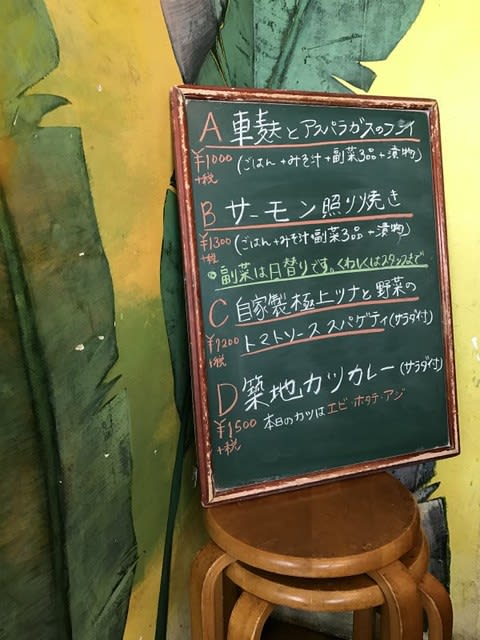 A 車麩とアスパラガスのフライ
¥1000 (ごはん+みそ汁+副菜3品+漬物)
+税
B サーモン照り焼き
¥1300 (ごはん+みそ汁+副菜3品+漬物)
+税
副菜は日替りです。くわしくはスタッフまで
C 自家製極上ツナと野菜の
¥1200 トマトソーススパゲティ(サラダ付)
+税
D 築地カツカレー(サラダ付)
¥1500 本日のカツはエビ・ホタテ・アジ
+税